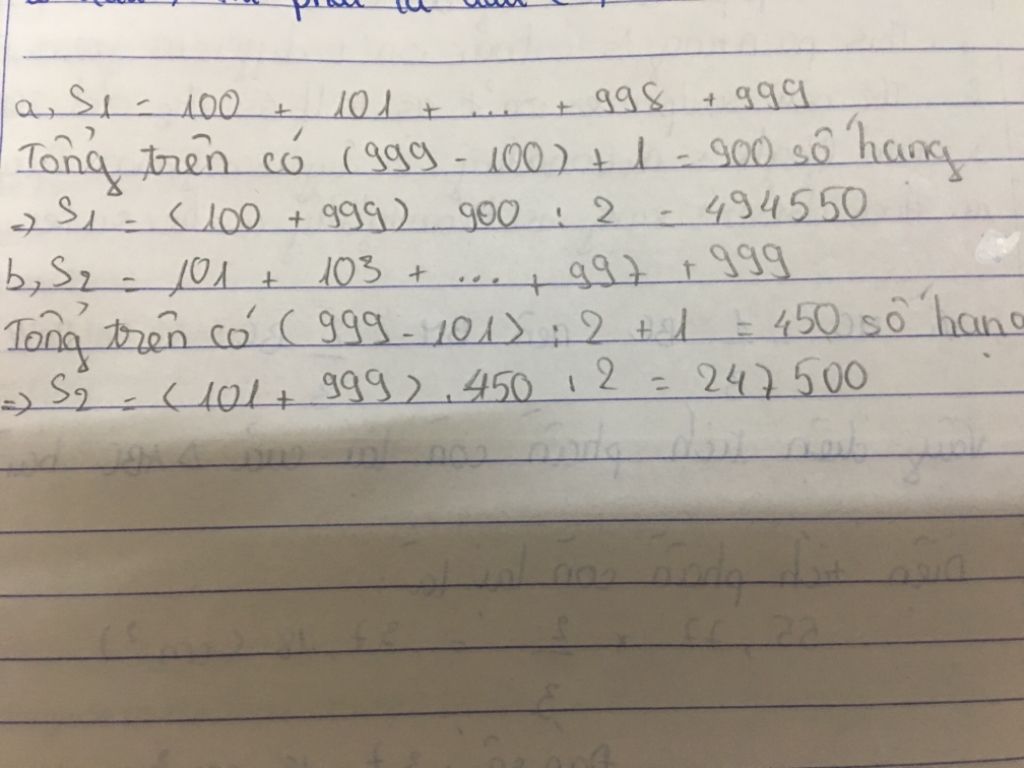 a, S1 = 100 + 101 + ... + 998 + 999
Tổng trên có (999 - 100) + 1 = 900 số hang
=> S1 = (100 + 999) . 900 : 2 = 494550
b, S2 = 101 + 103 + ... + 997 + 999
Tổng trên có (999 - 101) : 2 + 1 = 450 số hạng
=> S2 = (101 + 999) . 450 : 2 = 247500